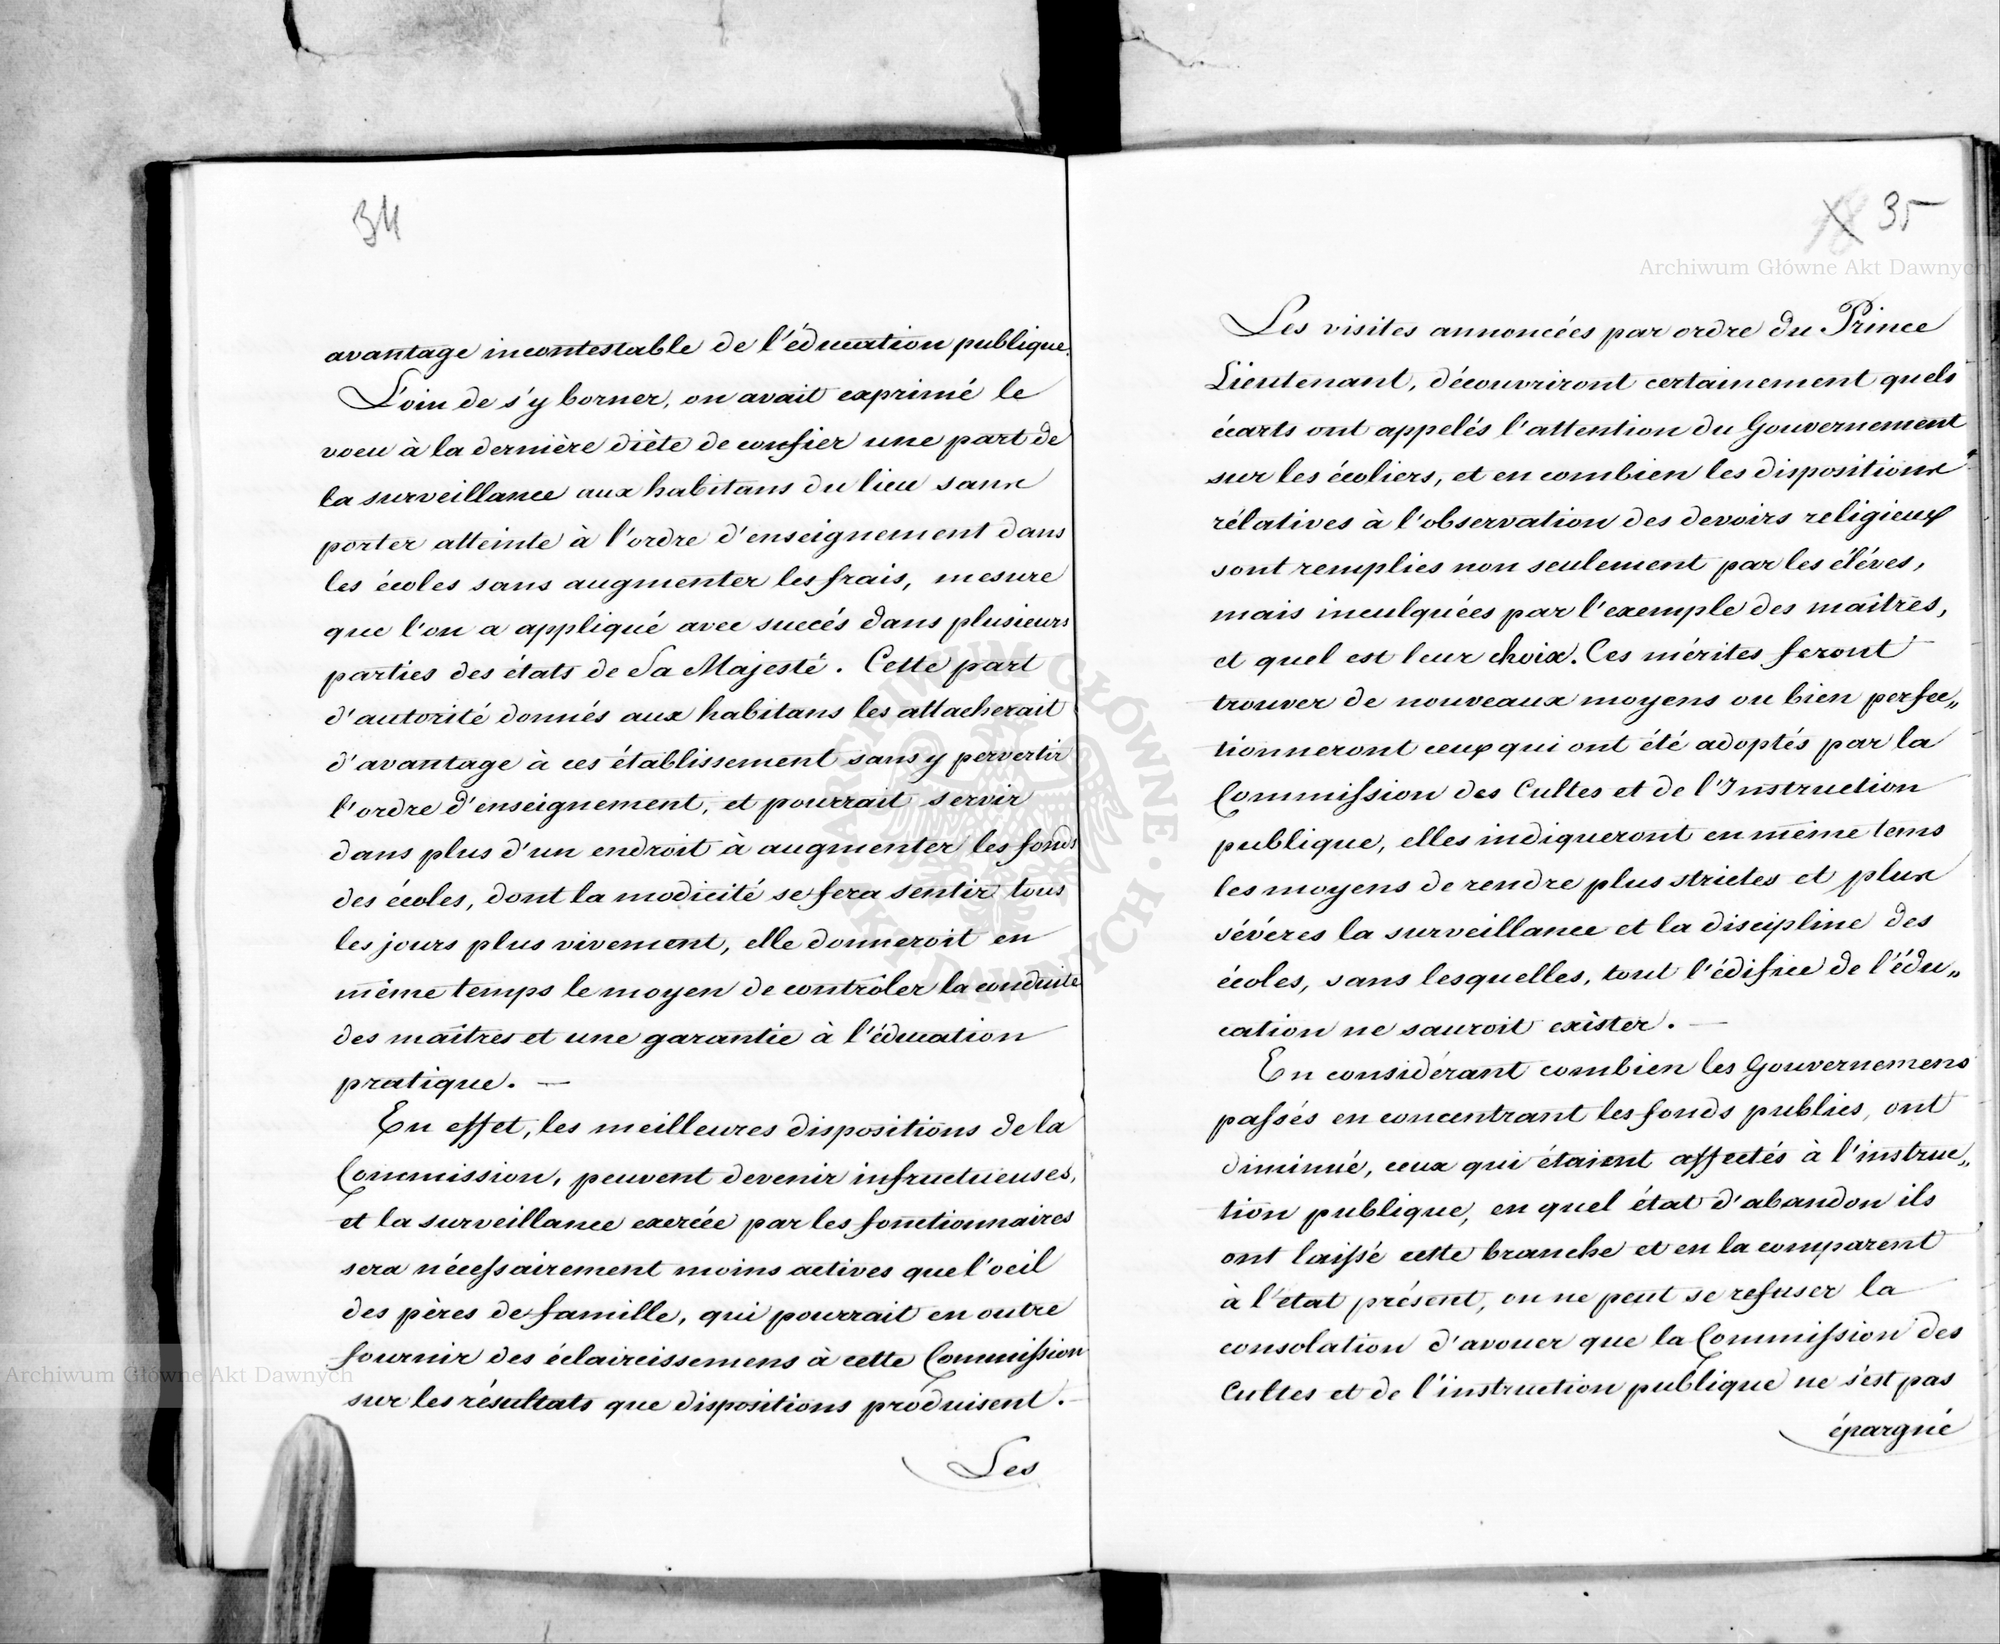 34
avantage incontestable de l'éducation publique.
Loin de s'y borner, on avait exprimé le
voeu à la dernière diète de confier une part de
la surveillance aux habitans du lieu sans
porter atteinte à l'ordre d'enseignement dans
les écoles sans augmenter les frais, mesure
que l'on a appliqué avec succés dans plusieurs
parties des états de Sa Majesté. Cette part
d'autorité donnés aux habitans les attacherait
d'avantage à ces établissement sans y pervertir
l'ordre d'enseignement, et pourrait servir
dans plus d'un endroit à augmenter les fonds
des écoles, dont la modicité se fera sentir tous
les jours plus vivement, elle donneroit en
même temps le moyen de contrôler la conduite
des maîtres et une garantie à l'éducation
pratique. —
En effet, les meilleures dispositions de la
Commission, peuvent devenir infructueuses,
et la surveillance exercée par les fonctionnaires
sera nécessairement moins actives que l'oeil
des pères de famille, qui pourrait en outre
fournir des éclaircissemens à cette Commission
sur les résultats que dispositions produisent. —
Les
18 35
Archiwum Główne Akt Dawnych
Les visites annoncées par ordre du Prince
Lieutenant, découvriront certainement quels
écarts ont appelés l'attention du Gouvernement
sur les écoliers, et en combien les dispositions
rélatives à l'observation des devoirs religieux
sont remplies non seulement par les éléves,
mais inculquées par l'exemple des maîtres,
et quel est leur choix. Ces mérites feront
trouver de nouveaux moyens ou bien perfec„
tionneront ceux qui ont été adoptés par la
Commission des Cultes et de l'Instruction
publique, elles indiqueront en même tems
les moyens de rendre plus strictes et plus
sévéres la surveillance et la discipline des
écoles, sans lesquelles, tout l'édifice de l'édu„
cation ne sauroit exister. —
En considérant combien les Gouvernemens
passés en concentrant les fonds publics, ont
diminué, ceux qui étaient affectés à l'instruc„
tion publique, en quel état d'abandon ils
ont laissé cette branche et en la comparent
à l'état présent, on ne peut se refuser la
consolation d'avouer que la Commission des
Cultes et de l'instruction publique ne s'est pas
épargné
ARCHIWUM GŁÓWNE AKT DAWNYCH
Archiwum Główne Akt Dawnych